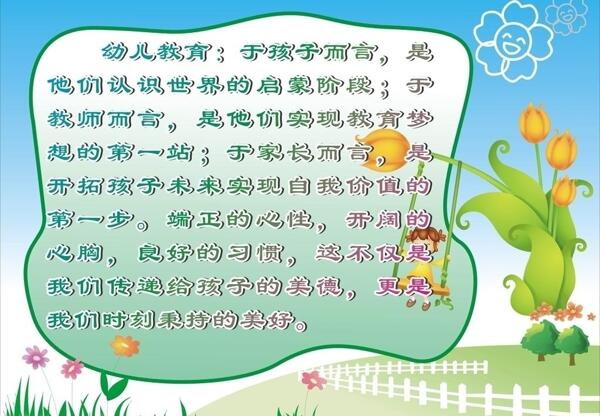 幼儿教育：于孩子而言，是
他们认识世界的启蒙阶段；于
教师而言，是他们实现教育梦
想的第一站；于家长而言，是
开拓孩子未来实现自我价值的
第一步。端正的心性，开阔的
心胸，良好的习惯，这不仅是
我们传递给孩子的美德，更是
我们时刻秉持的美好。